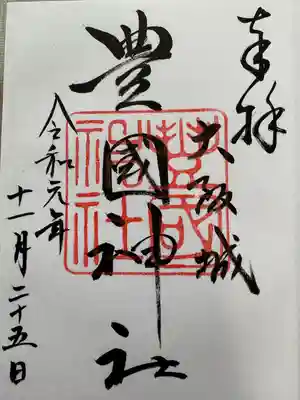 奉拝
大阪城
豊國神社
令和元年
十一月二十五日